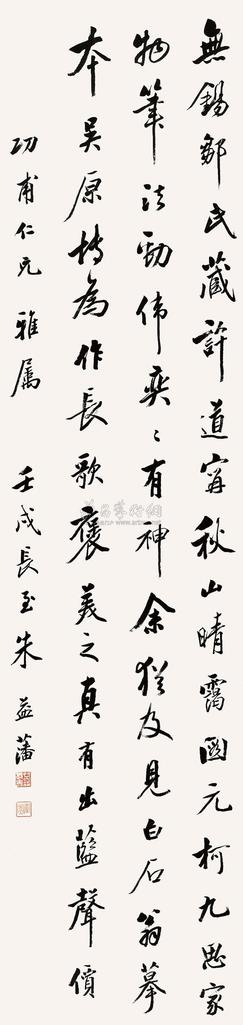 無錫鄒氏藏許道寧秋山晴靄圖元柯九思家
物筆法勁偉奕〻有神余猶及見白石翁摹
本吳原博為作長歌褒美之真有出藍聲價
功甫仁兄 雅屬
壬戌長至朱益藩